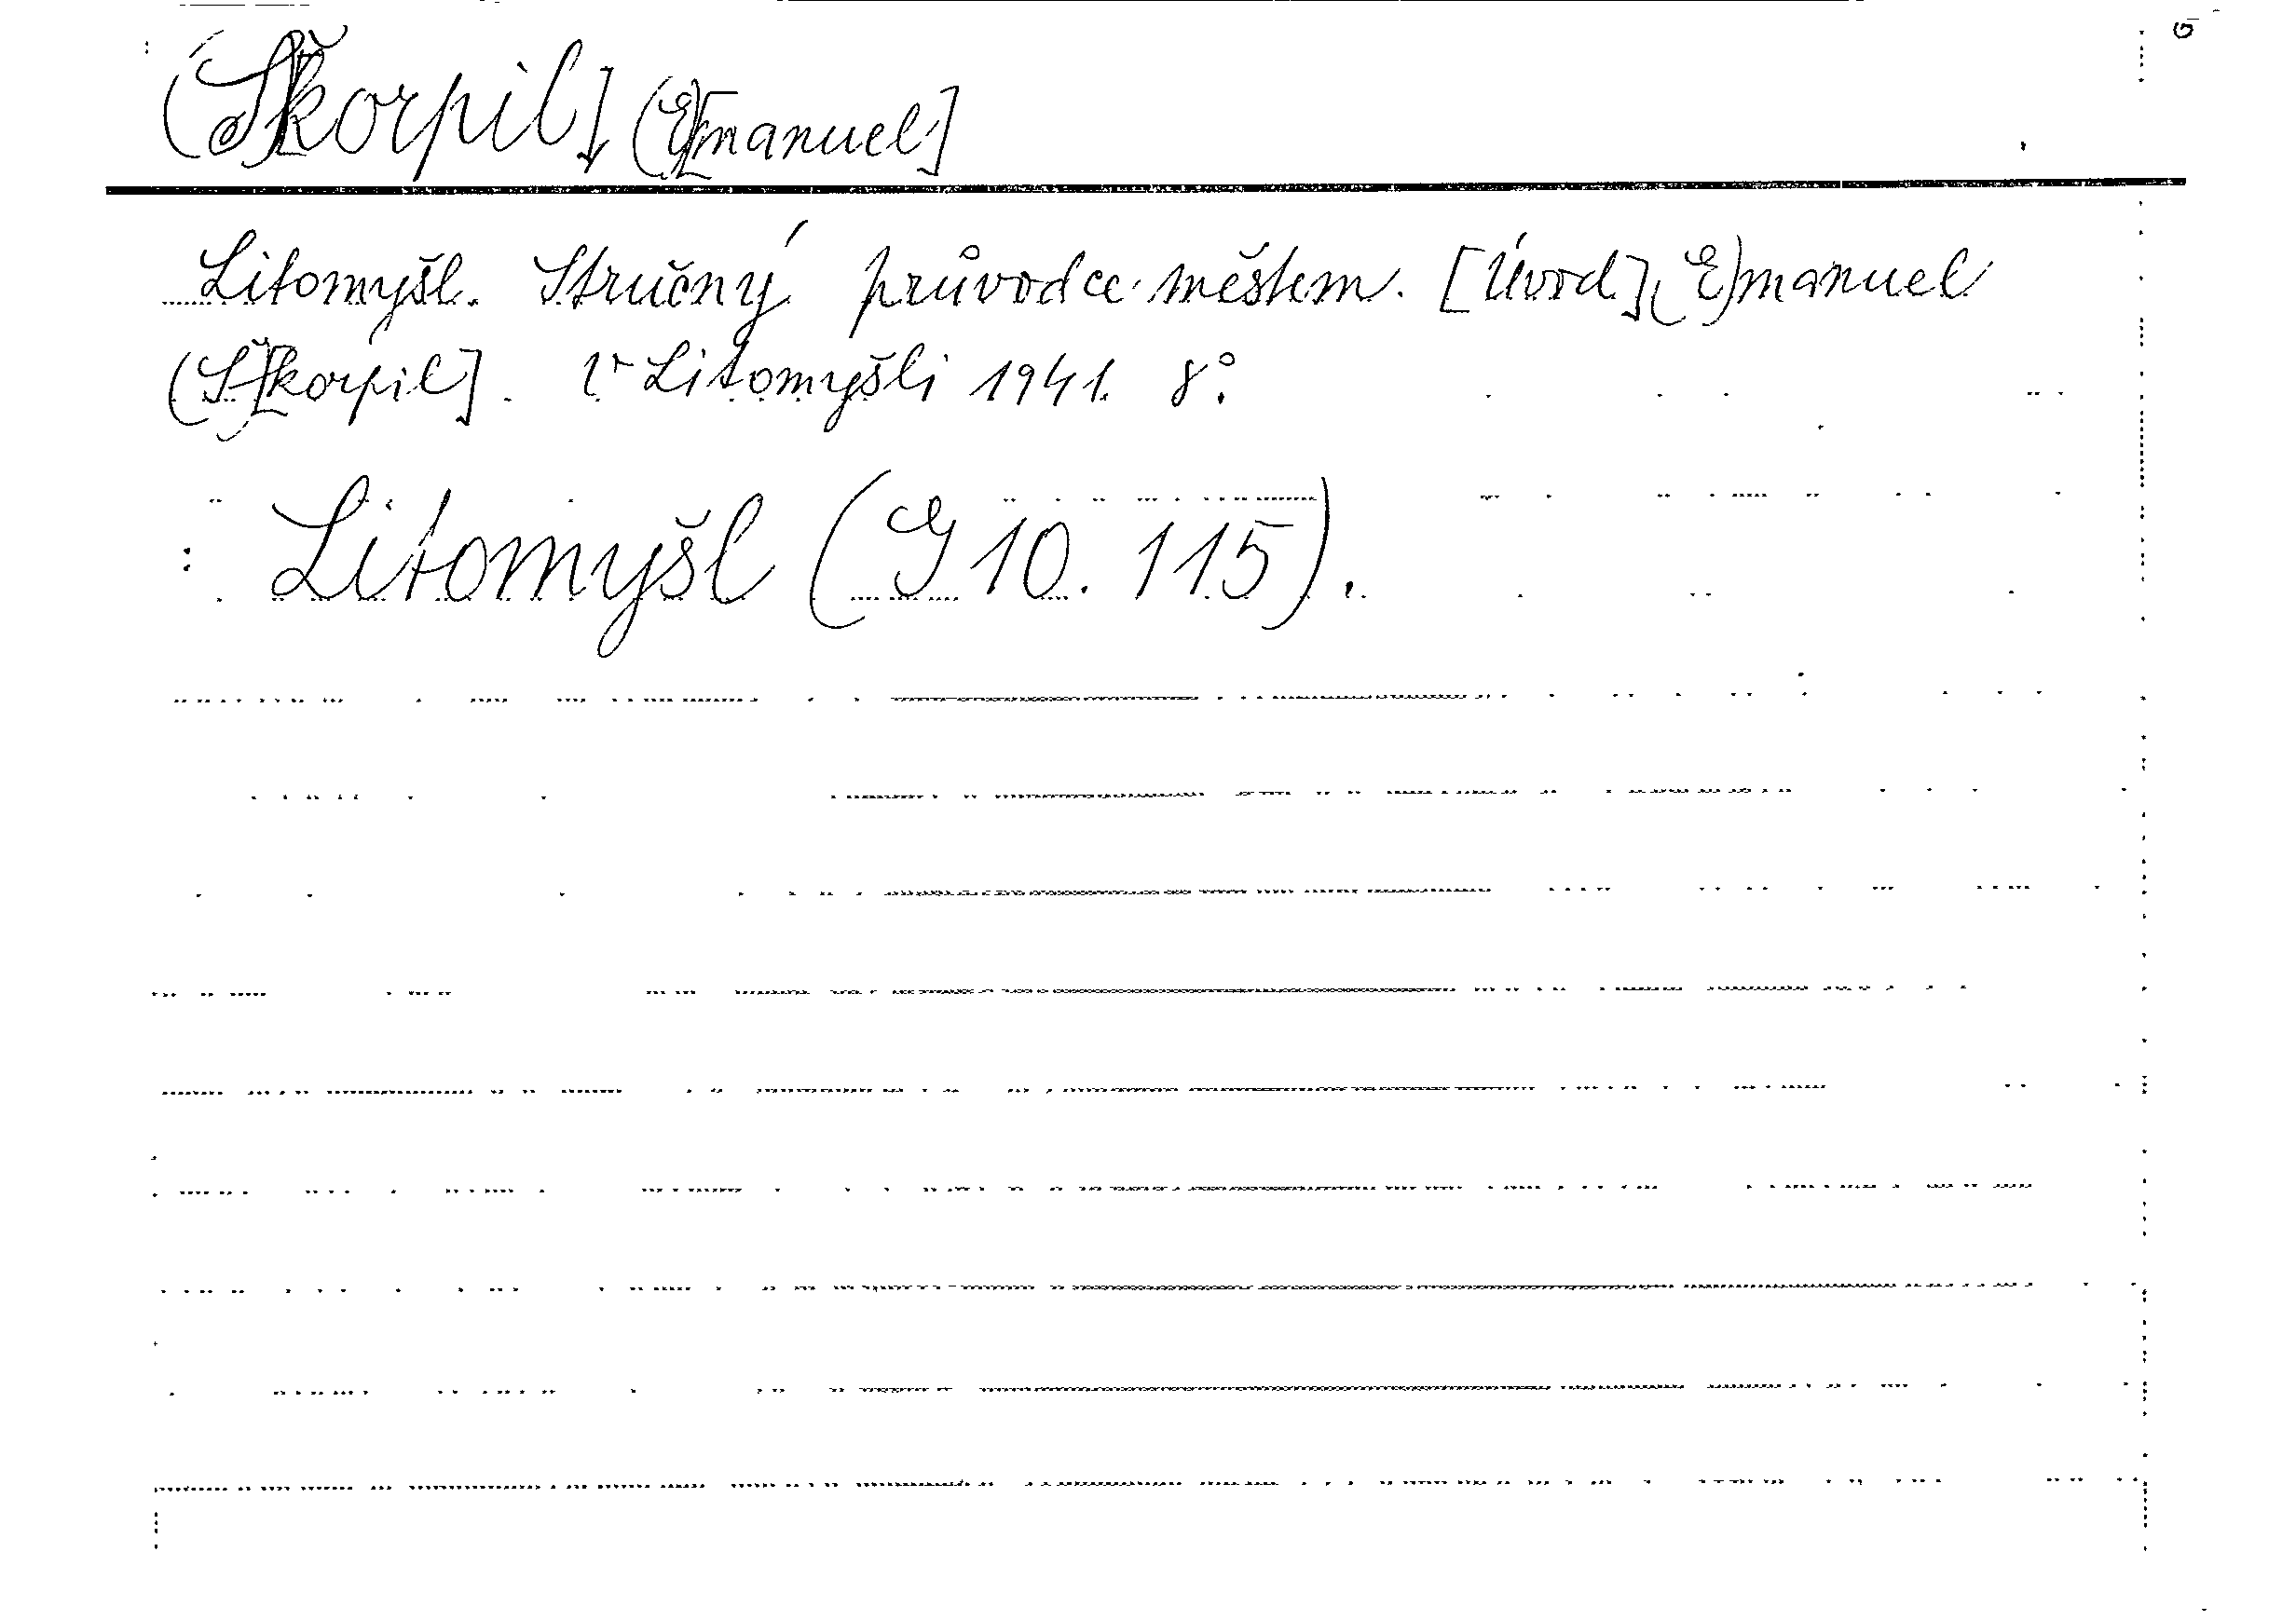 (Š)[korpil] (E)[manuel]
Litomyšl. Stručný průvodce městem. [Úvod] (E)manuel
(Š)[korpil]. V Litomyšli 1941. 8°.
: Litomyšl (G 10. 115).